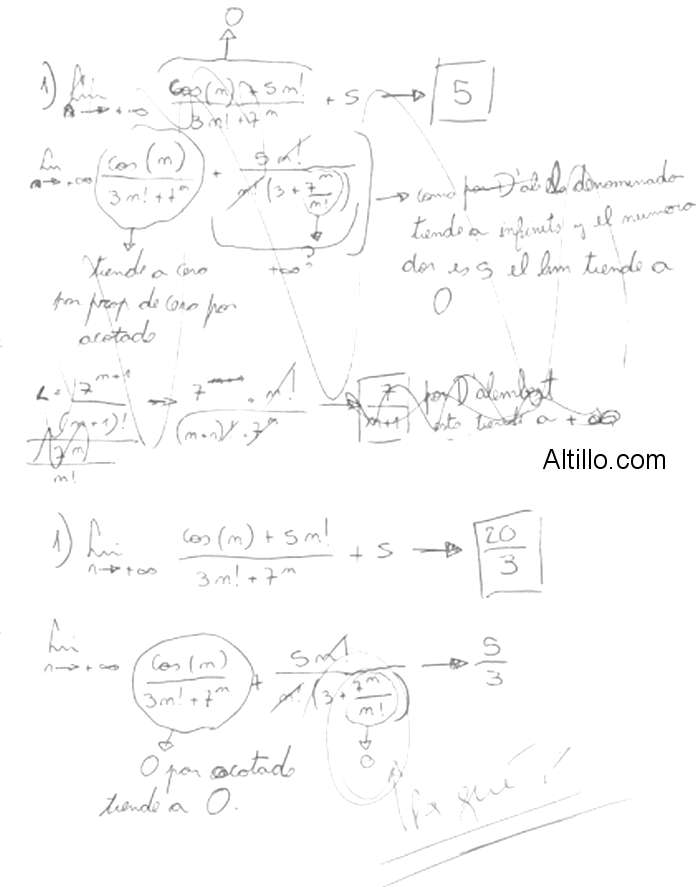 0
1) Lim n→+∞ (cos(n) + 5n!)/(3n! + 7^n) + 5 → 5
Lim n→+∞ cos(n)/(3n! + 7^n) + 5n!/(n!(3 + 7^n/n!)) → como por D'al el denominado
tiende a infinito y el numera
dor es 5 el lim tiende a
0
tiende a cero
por prop de cero por
acotado
+∞?
L = (7^(n+1)/(n+1)!)/(7^n/n!) → 7 · n!/((n+1)! · 7^n) → 7/(n+1) por D'alembert
esto tiende a +∞
Altillo.com
1) Lim n→+∞ (cos(n) + 5n!)/(3n! + 7^n) + 5 → 20/3
Lim n→+∞ cos(n)/(3n! + 7^n) + 5n!/(n!(3 + 7^n/n!)) → 5/3
0 por acotado
tiende a 0.
0
qué?